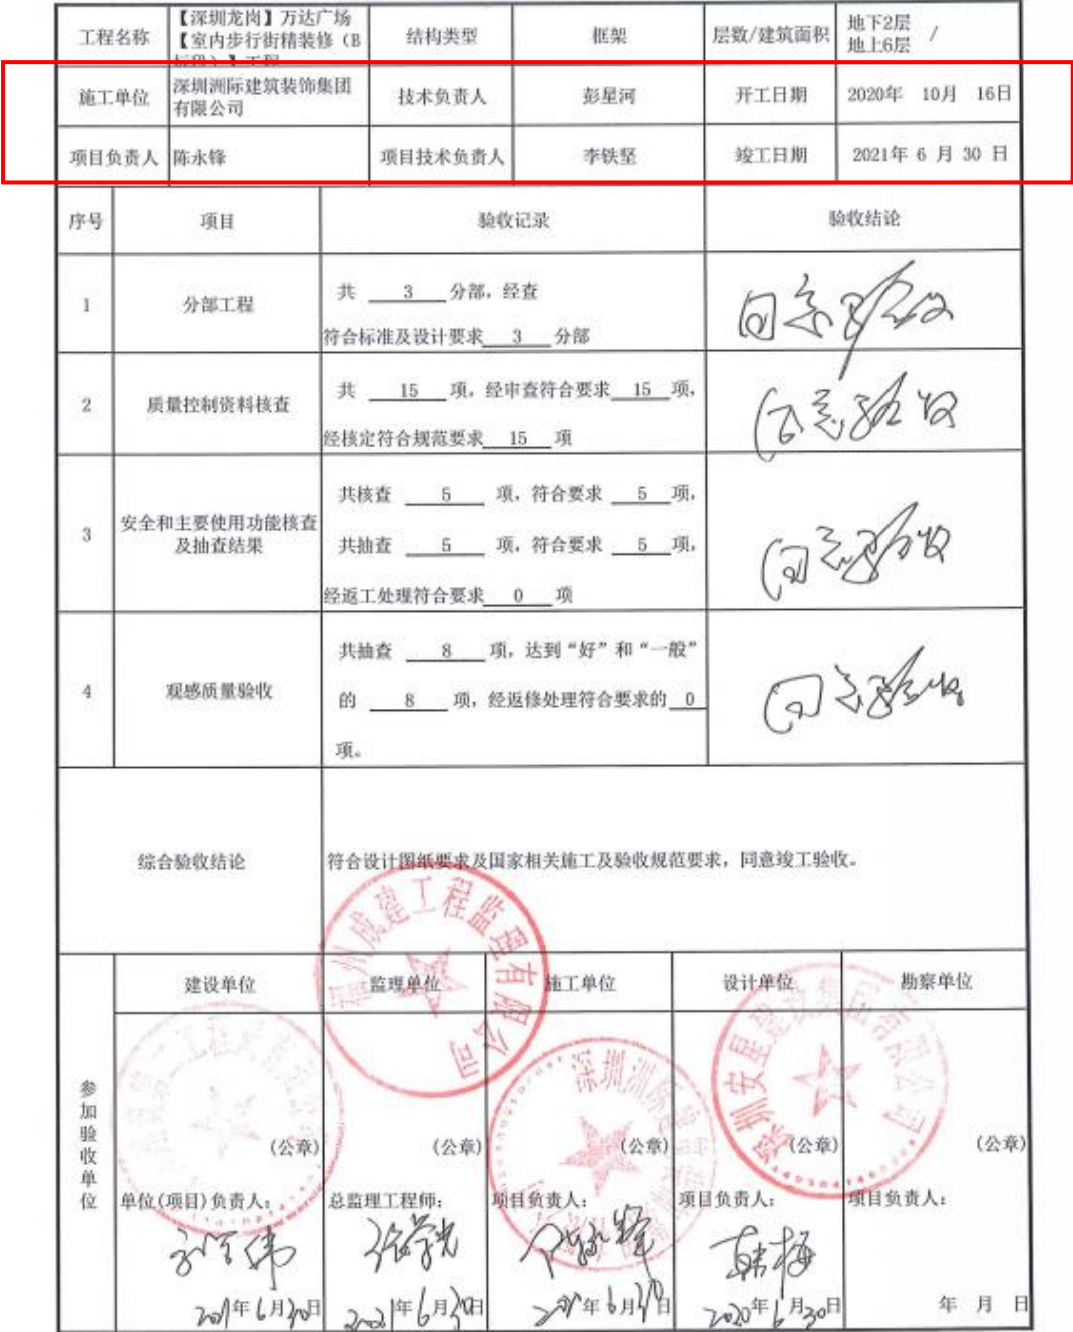 工程名称
【深圳龙岗】万达广场
【室内步行街精装修（B
标段）】工程
结构类型
框架
层数/建筑面积
地下2层
地上6层 /
施工单位
深圳洲际建筑装饰集团
有限公司
技术负责人
彭星河
开工日期
2020年 10月 16日
项目负责人
陈永锋
项目技术负责人
李铁坚
竣工日期
2021年 6 月 30 日
序号
项目
验收记录
验收结论
1
分部工程
共 3 分部，经查
符合标准及设计要求 3 分部
同意验收
2
质量控制资料核查
共 15 项，经审查符合要求 15 项，
经核定符合规范要求 15 项
同意验收
3
安全和主要使用功能核查
及抽查结果
共核查 5 项，符合要求 5 项，
共抽查 5 项，符合要求 5 项，
经返工处理符合要求 0 项
同意验收
4
观感质量验收
共抽查 8 项，达到“好”和“一般”
的 8 项，经返修处理符合要求的 0
项。
同意验收
综合验收结论
符合设计图纸要求及国家相关施工及验收规范要求，同意竣工验收。
参加验收单位
建设单位
监理单位
施工单位
设计单位
勘察单位
(公章)
(公章)
(公章)
(公章)
(公章)
单位(项目)负责人：
总监理工程师：
项目负责人：
项目负责人：
项目负责人：
韩梅
2021年6月30日
2021年6月30日
2021年6月30日
2020年6月30日
年 月 日